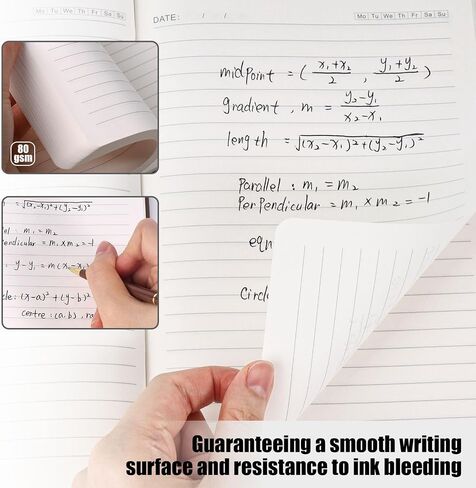 Mo Tu We Th Fr Sa Su
DATE: / / Mo Tu We Th Fr Sa Su
midpoint = ( x₁+x₂ / 2 , y₁+y₂ / 2 )
gradient, m = y₂-y₁ / x₂-x₁
length = √(x₂-x₁)²+(y₂-y₁)²
Parallel : m₁ = m₂
Perpendicular = m₁ × m₂ = -1
eqn
Circle
80
gsm
= √(x₂-x₁)²+(y₂-y₁)²
el : m₁ = m₂
endicular = m₁ × m₂ = -1
: y-y₁ = m(x-x₁)
cle: (x-a)² + (y-b)²
centre: (a, b), ra
Guaranteeing a smooth writing
surface and resistance to ink bleeding